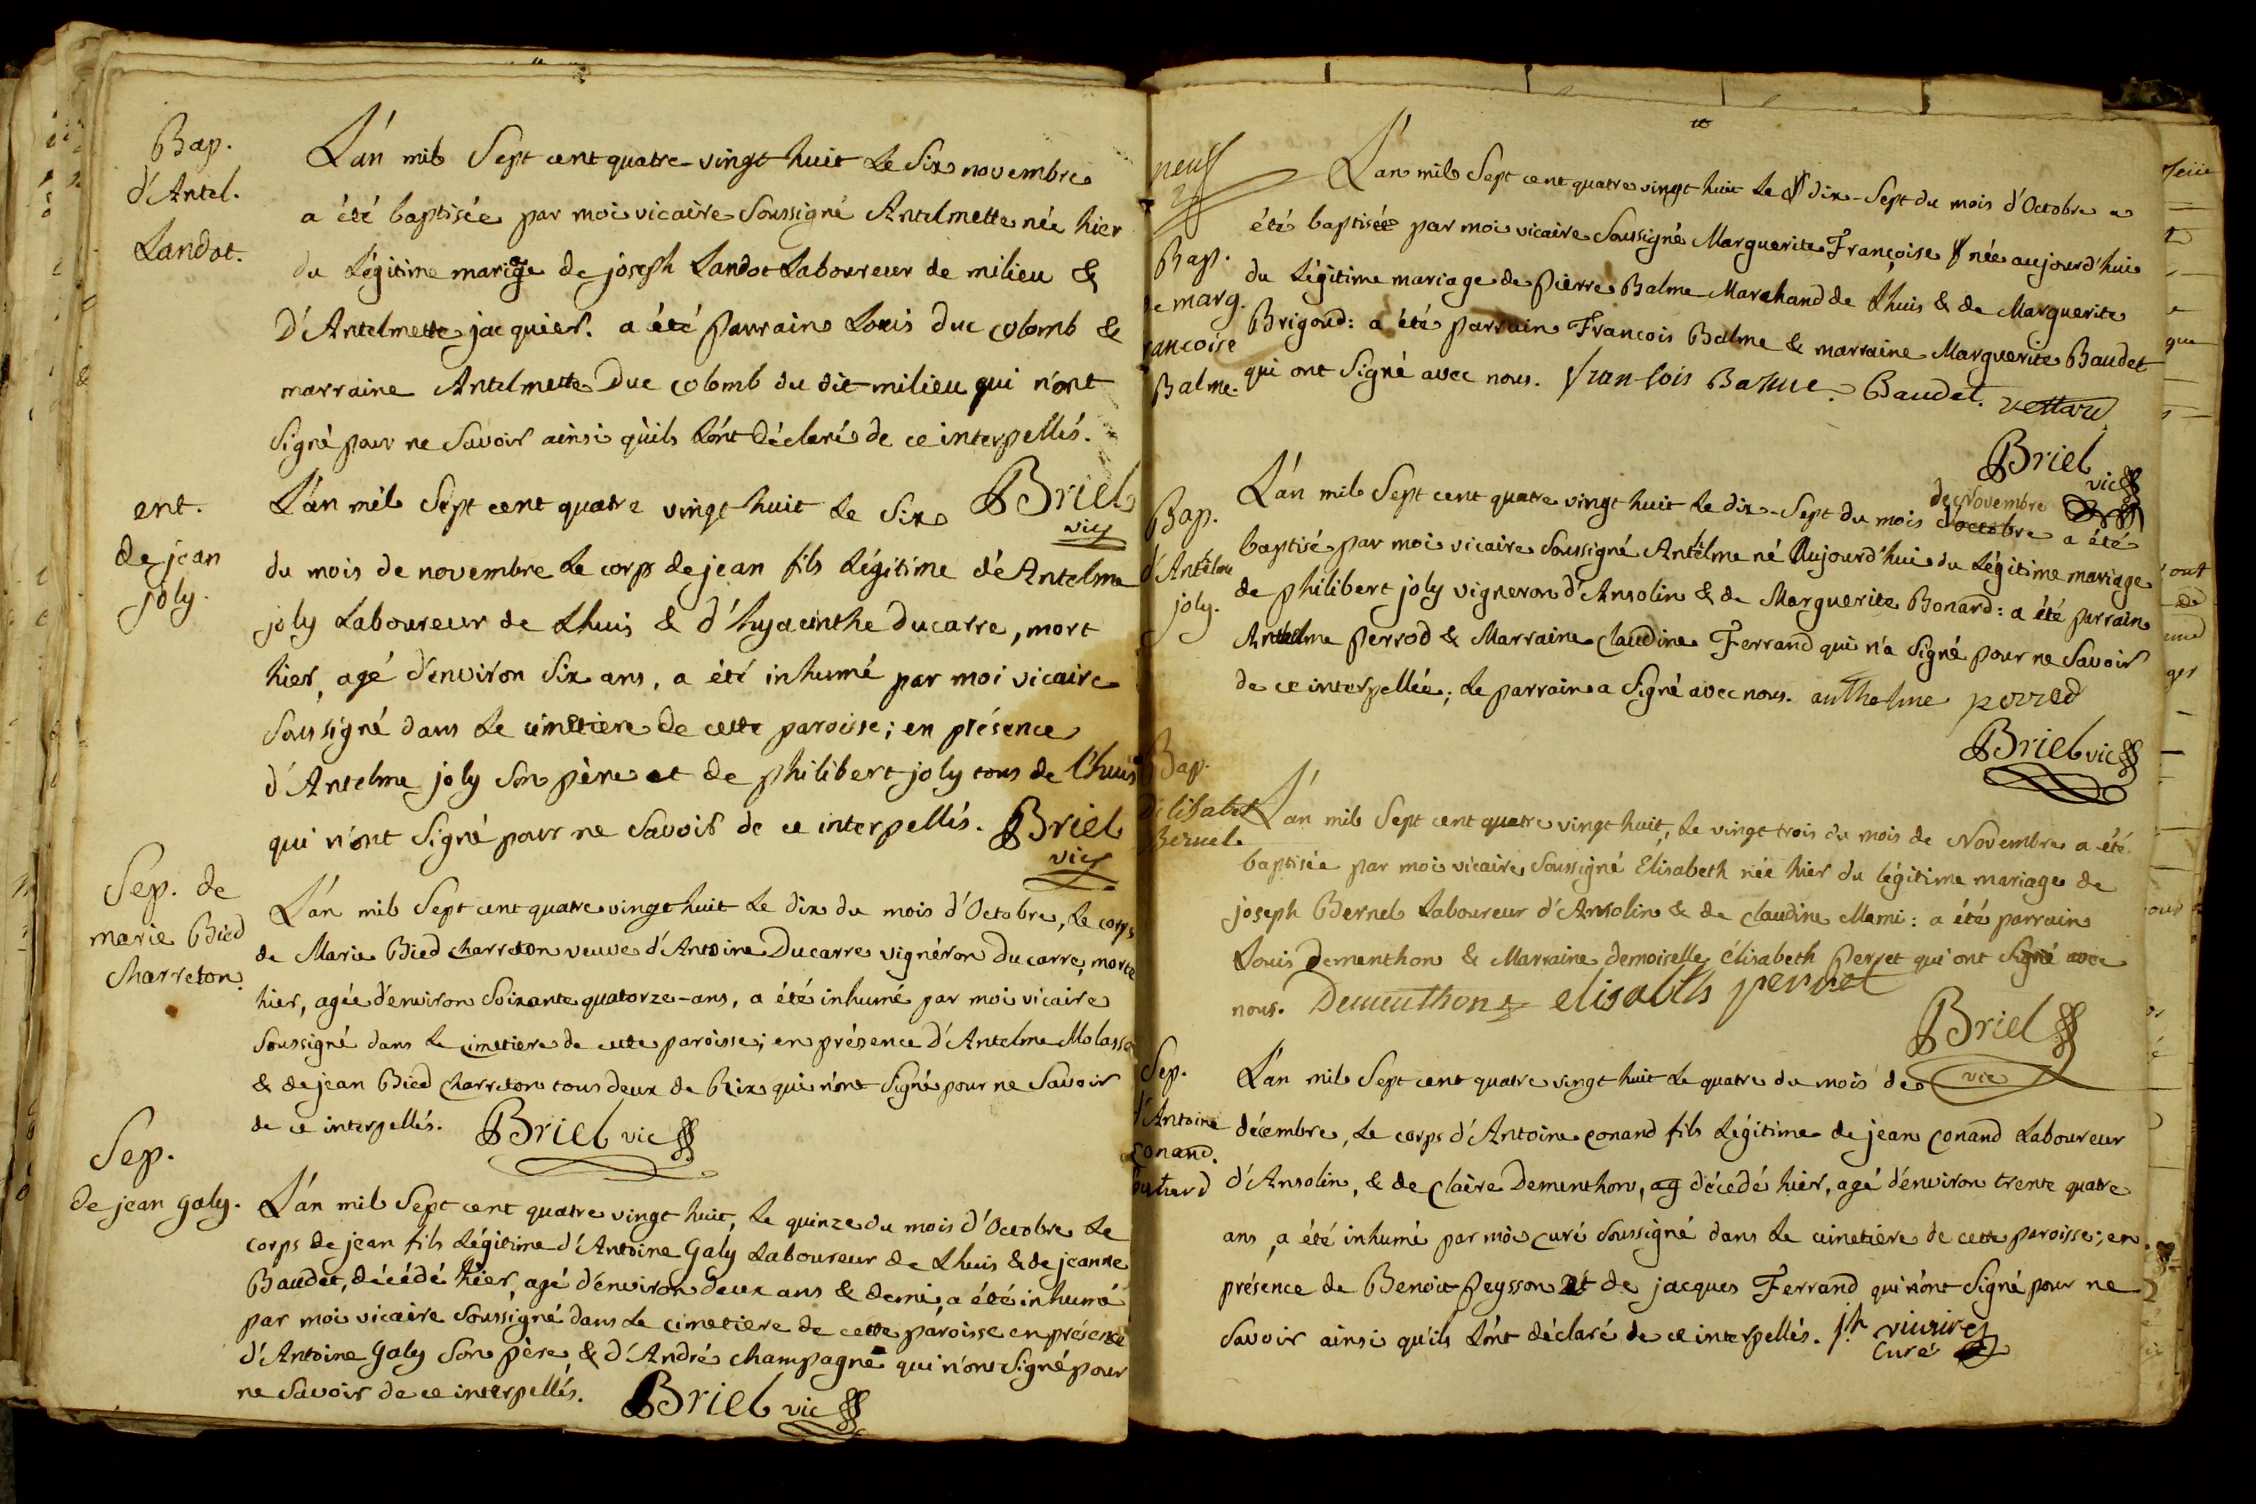 Bap.
d'Antel.
Landot.
L'an mil Sept cent quatre-vingt huit Le Six novembre
a été baptisée par moi vicaire Soussigné Antelmette née hier
du Légitime mariage de joseph Landot Laboureur de milieu &
d'Antelmette jacquier. a été parrain Louis duc colomb &
marraine Antelmette Duc colomb du dit milieu qui n'ont
Signé pour ne Savoir ainsi qu'ils L'ont déclaré de ce interpellés.
Briel
vic
ent.
de jean
joly.
L'an mil Sept cent quatre vingt huit Le Six
du mois de novembre Le corps de jean fils Légitime d'Antelme
joly Laboureur de Lhuis & d'hyacinthe ducarre, mort
hier, agé d'environ Six ans, a été inhumé par moi vicaire
Soussigné dans Le cimetiere de cette paroisse; en présence
d'Antelme joly Son père et de philibert joly tous de Lhuis
qui n'ont Signé pour ne Savoir de ce interpellés. Briel
vic
Sep. de
marie Bied
Charreton.
L'an mil Sept cent quatre vingt huit Le dix du mois d'Octobre, Le corps
de Marie Bied charreton veuve d'Antoine Ducarre vignéron Ducarre, morte
hier, agée d'environ Soixante quatorze-ans, a été inhumé par moi vicaire
Soussigné dans Le cimetiere de cette paroisse; en présence d'Antelme Molasse
& de jean Bied charreton tous deux de Rix qui n'ont Signé pour ne Savoir
de ce interpellés. Briel vic
Sep.
de jean galy.
L'an mil Sept cent quatre vingt huit, Le quinze du mois d'Octobre Le
corps de jean fils Légitime d'Antoine Galy Laboureur de Lhuis & de jeanne
Baudet, décédé hier, agé d'environ deux ans & demi, a été inhumé
par moi vicaire Soussigné dans Le cimetiere de cette paroisse en présence
d'Antoine Galy Son père & d'André champagne qui n'ont Signé pour
ne Savoir de ce interpellés. Briel vic
neuf
Bap.
de marg.
francoise
Balme.
L'an mil Sept cent quatre vingt huit Le dix-Sept du mois d'Octobre a
été baptisée par moi vicaire Soussigné Marguerite Françoise née aujourd'hui
du Légitime mariage de Pierre Balme Marchand de Lhuis & de Marguerite
Brigoud: a été parrain Francois Balme & marraine Marguerite Baudet
qui ont Signé avec nous. fran-fois Balme. Baudet.
Briel
vic
Bap.
d'Antelme
joly.
de Novembre
L'an mil Sept cent quatre vingt huit Le dix-Sept du mois d'octobre a été
baptisé par moi vicaire Soussigné Antelme né Aujourd'hui du Légitime mariage
de philibert joly vigneron d'Ansolin & de Marguerite Bonard: a été parrain
Antelme Perrod & Marraine Claudine Ferrand qui n'a Signé pour ne Savoir
de ce interpellée; Le parrain a Signé avec nous. anthelme perrod
Briel vic
Bap.
d'Elisabet
Bernel.
L'an mil Sept cent quatre vingt huit, Le vingt trois du mois de Novembre a été
baptisée par moi vicaire Soussigné Elisabeth née hier du légitime mariage de
joseph Bernel Laboureur d'Ansolin & de Claudine Mami: a été parrain
Louis Dementhon & Marraine demoiselle élisabeth Perret qui ont Signé avec
nous. Dementhon elisabeth perret
Briel
vic
Sep.
d'Antoine
Conand.
L'an mil Sept cent quatre vingt huit Le quatre du mois de
décembre, Le corps d'Antoine Conand fils Légitime de jean Conand Laboureur
d'Ansolin, & de Claire Dementhon, ag décédé hier, agé d'environ trente quatre
ans, a été inhumé par moi Curé Soussigné dans Le cimetiere de cette paroisse; en
présence de Benoit Peysson et de jacques Ferrand qui n'ont Signé pour ne
Savoir ainsi qu'ils L'ont déclaré de ce interpellés.
Curé